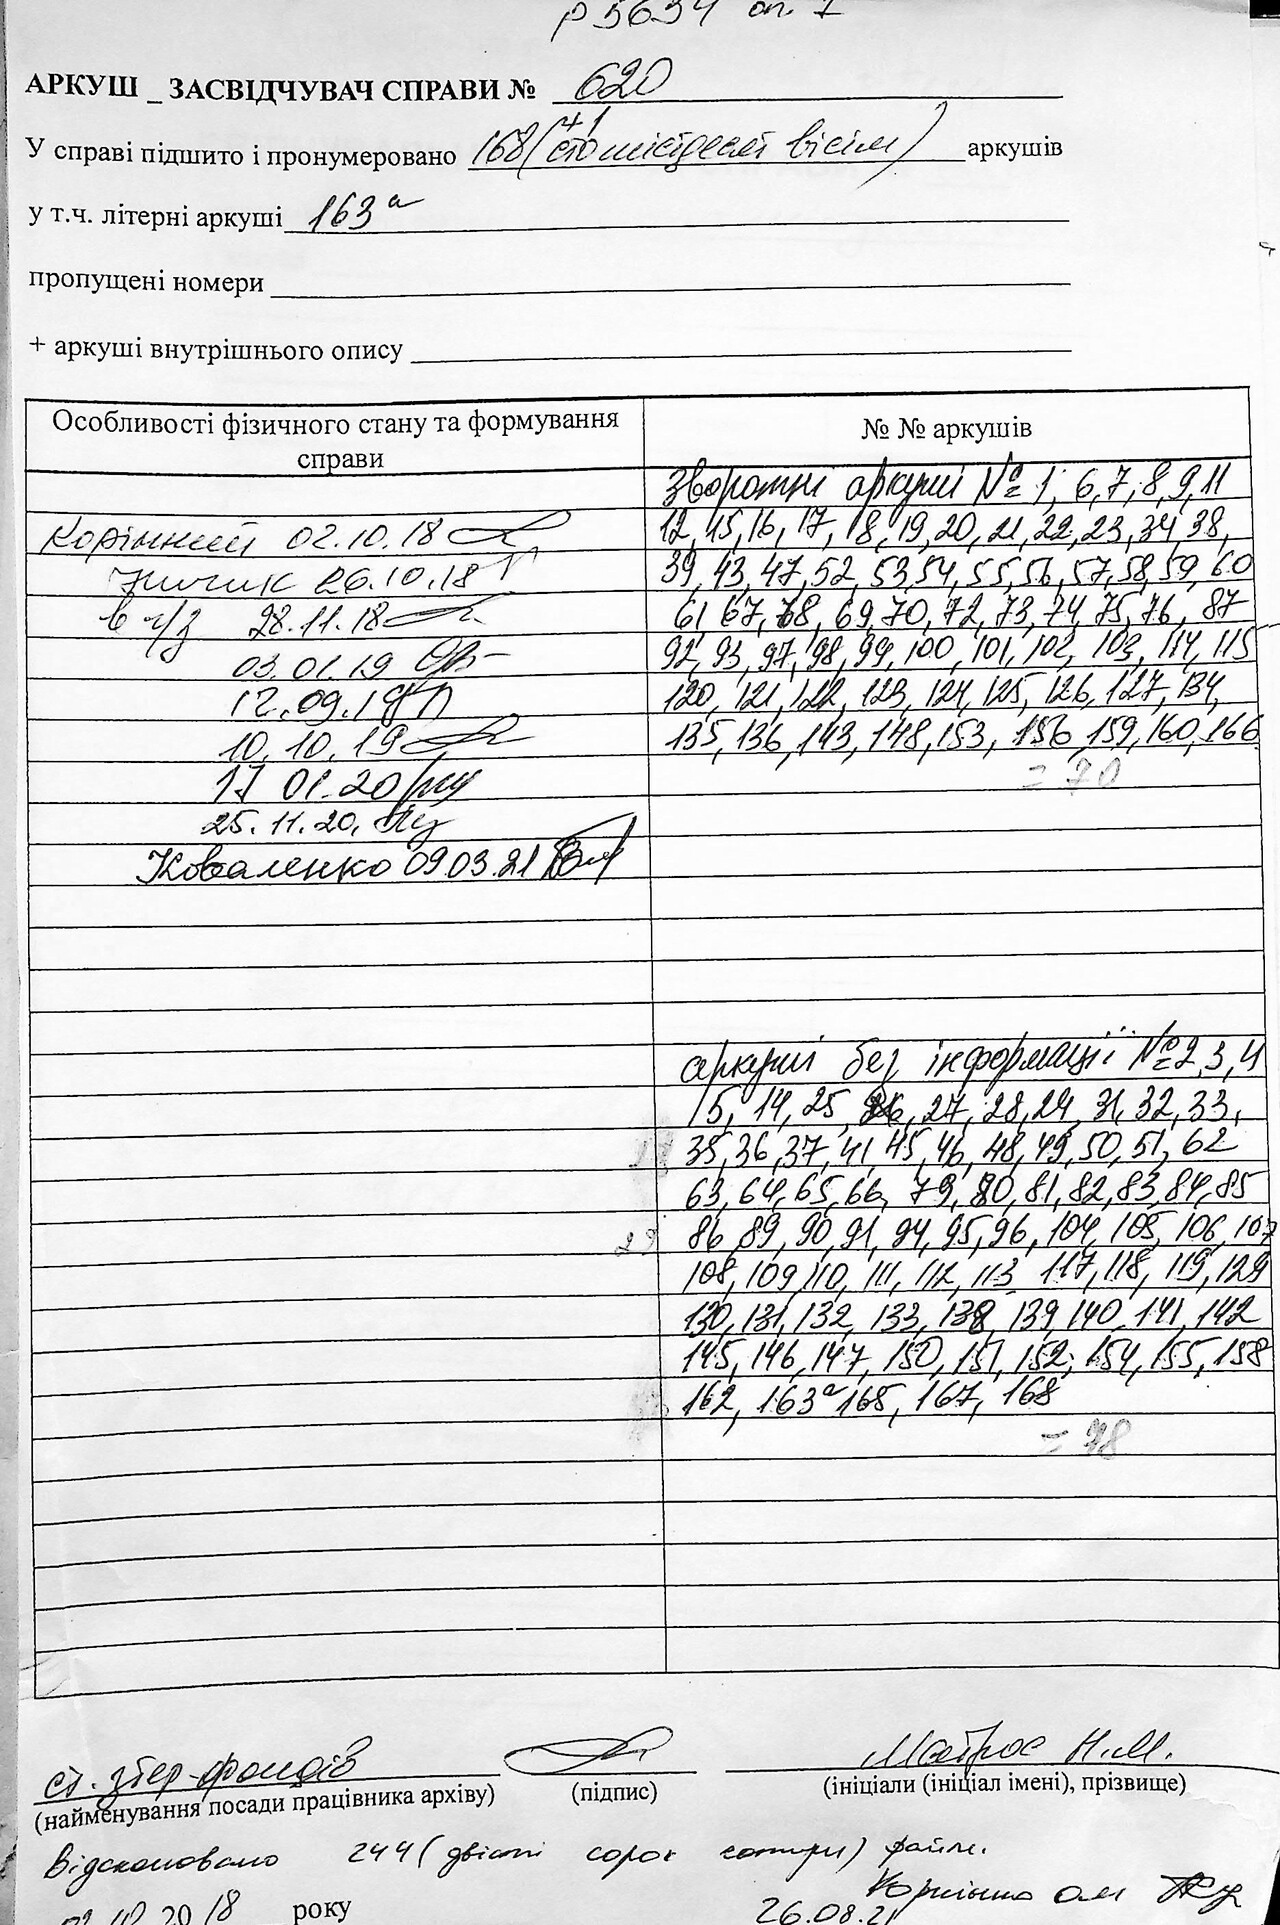 Р 5634 оп. 1
АРКУШ _ ЗАСВІДЧУВАЧ СПРАВИ № 620
+1
У справі підшито і пронумеровано 168 (сто шістдесят вісім) аркушів
у т.ч. літерні аркуші 163а
пропущені номери
+ аркуші внутрішнього опису
Особливості фізичного стану та формування справи
№ № аркушів
Зворотні аркуші № 1, 6, 7, 8, 9, 11
Корінний 02.10.18
12, 15, 16, 17, 18, 19, 20, 21, 22, 23, 34, 38,
26.10.18
39, 43, 47, 52, 53, 54, 55, 56, 57, 58, 59, 60
в ч/з 28.11.18
61, 67, 68, 69, 70, 72, 73, 74, 75, 76, 87
03.01.19
92, 93, 97, 98, 99, 100, 101, 102, 103, 114, 115
12.09.19
120, 121, 122, 123, 124, 125, 126, 127, 134,
10.10.19
135, 136, 143, 148, 153, 156, 159, 160, 166
17 01.20
= 70
25.11.20.
Коваленко 09.03.21
аркуші без інформації № 2, 3, 4
5, 14, 25, 26, 27, 28, 29, 31, 32, 33,
35, 36, 37, 41, 45, 46, 48, 49, 50, 51, 62
63, 64, 65, 66, 79, 80, 81, 82, 83, 84, 85
86, 89, 90, 91, 94, 95, 96, 104, 105, 106, 107
108, 109, 110, 111, 112, 113, 117, 118, 119, 129
130, 131, 132, 133, 138, 139, 140, 141, 142
145, 146, 147, 150, 151, 152, 154, 155, 158
162, 163а 165, 167, 168
= 78
ст. збер. фондів
Матрос Н.М.
(найменування посади працівника архіву) (підпис) (ініціали (ініціал імені), прізвище)
Відскановано 244 (двісті сорок чотири) файли.
2018 року
26.08.21